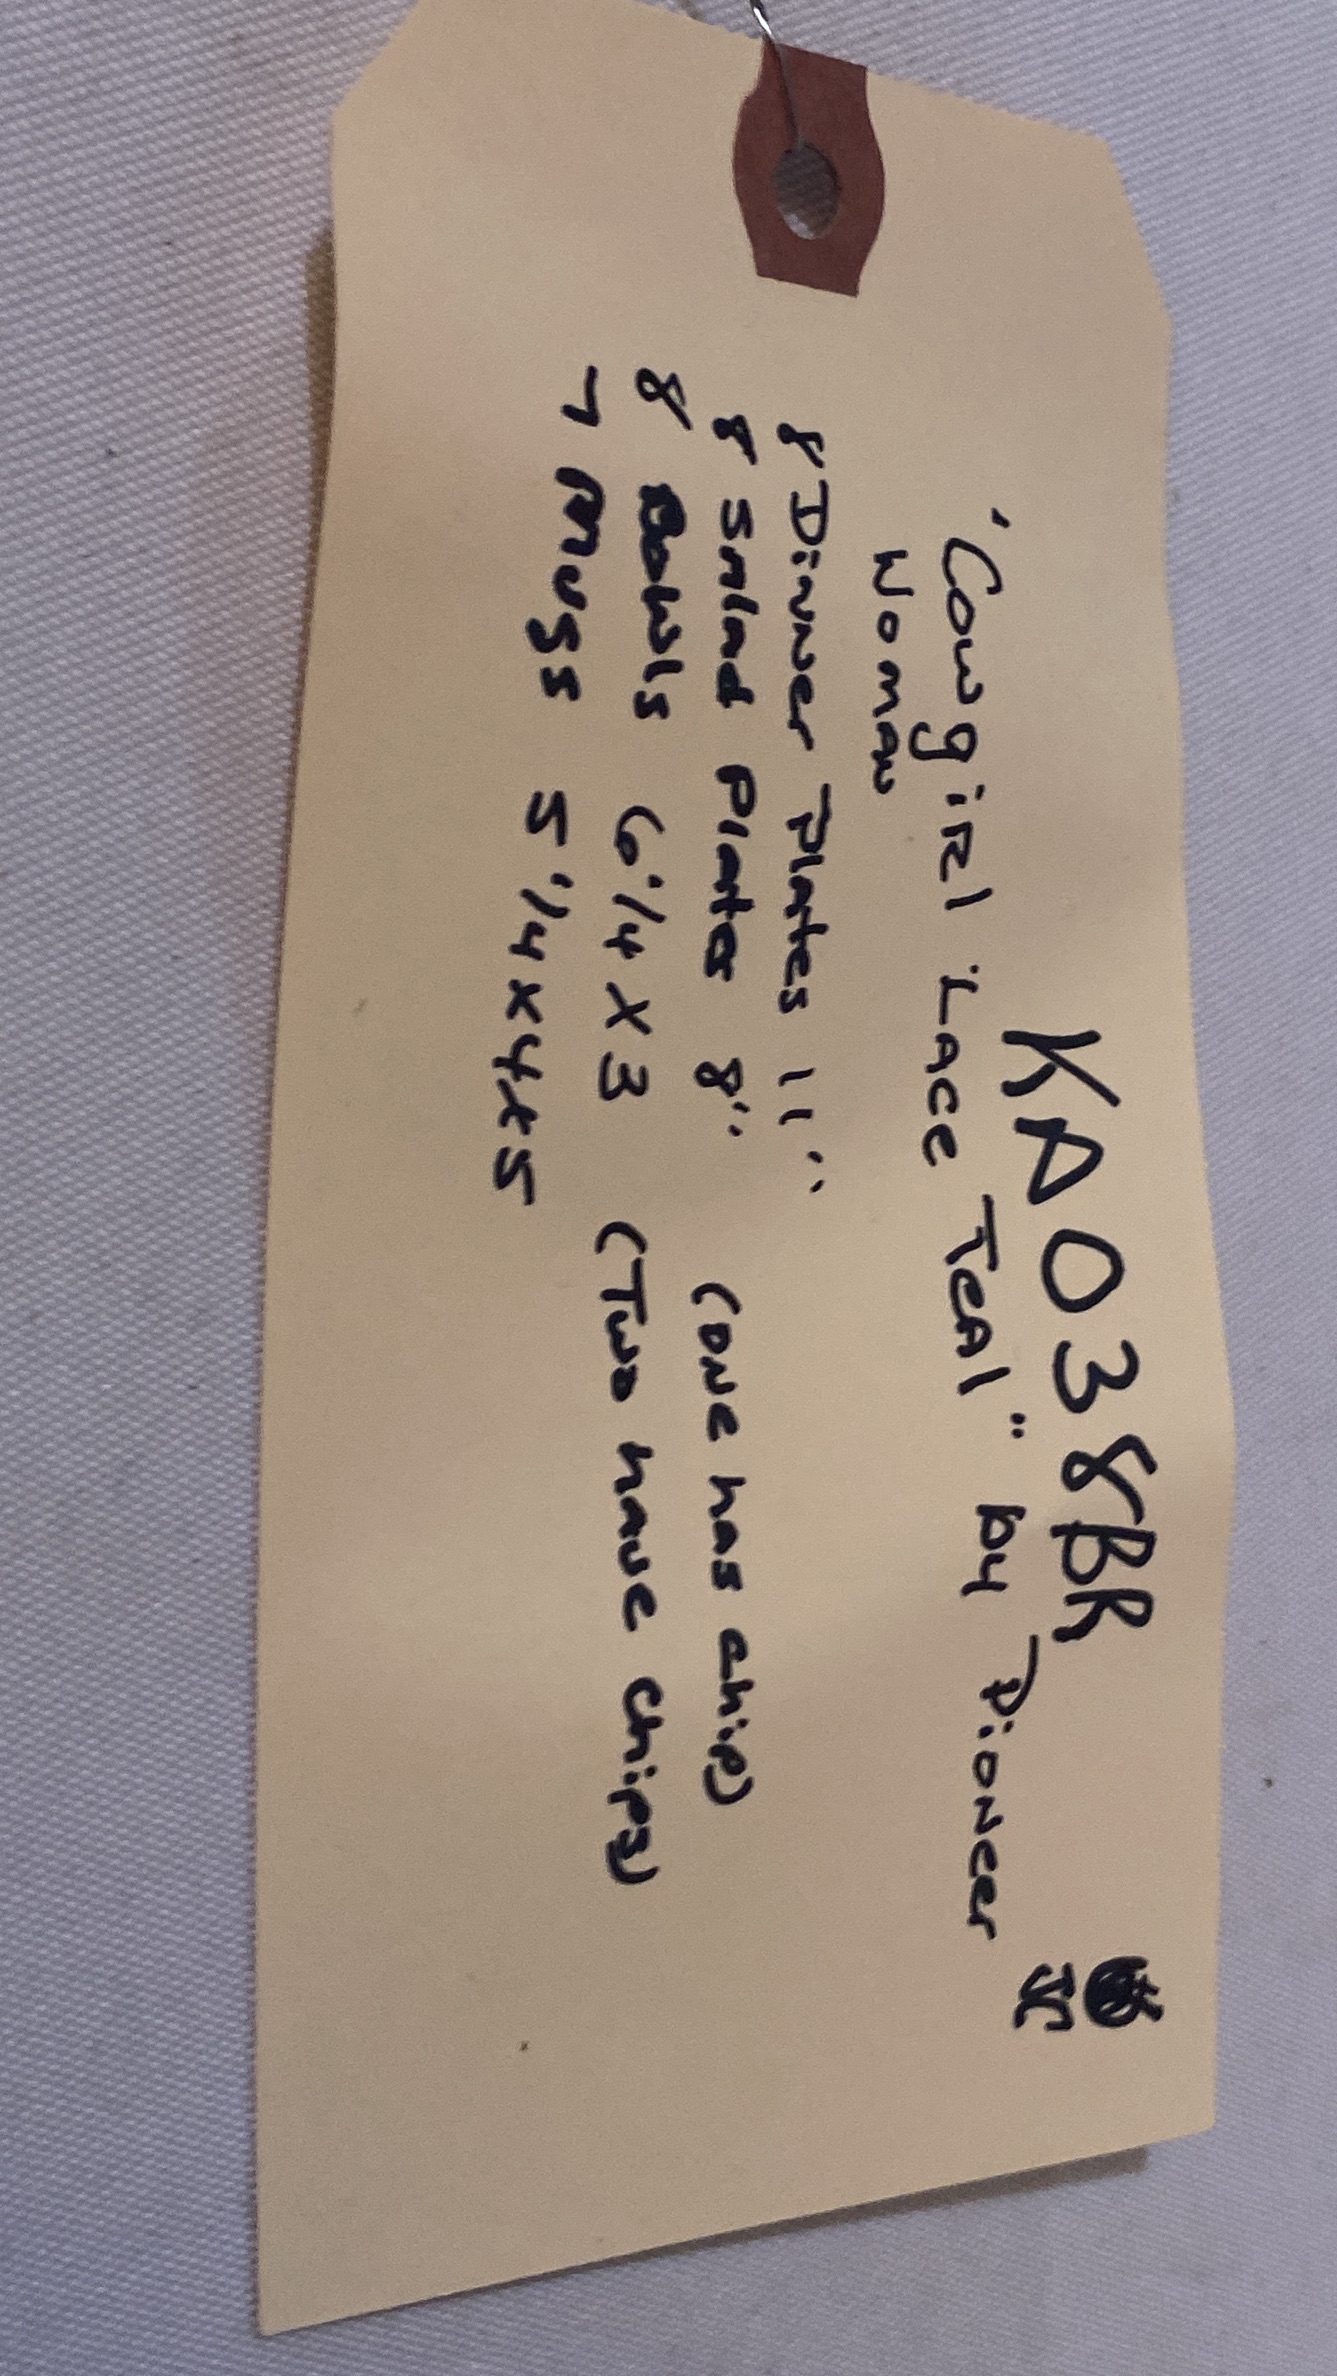 KA038BR
JC
"Cowgirl Lace Teal" by Pioneer
Woman
8 Dinner Plates 11"
8 Salad Plates 8" (one has chip)
8 Bowls 6 1/4 x 3 (Two have chips)
7 Mugs 5 1/4 x 4 x 5